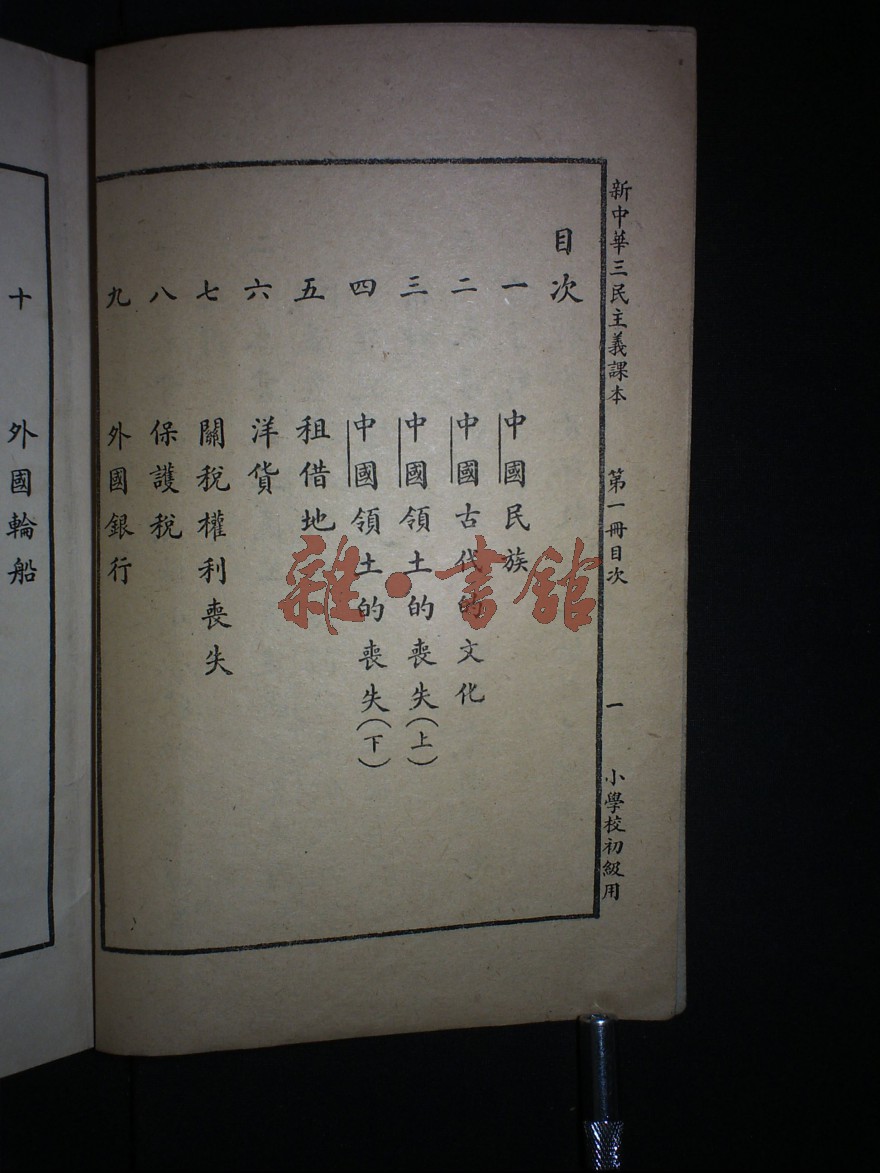 新中華三民主義課本 第一冊目次 一 小學校初級用
目次
一 中國民族
二 中國古代的文化
三 中國領土的喪失(上)
四 中國領土的喪失(下)
五 租借地
六 洋貨
七 關稅權利喪失
八 保護稅
九 外國銀行
十 外國輪船
雜·書館